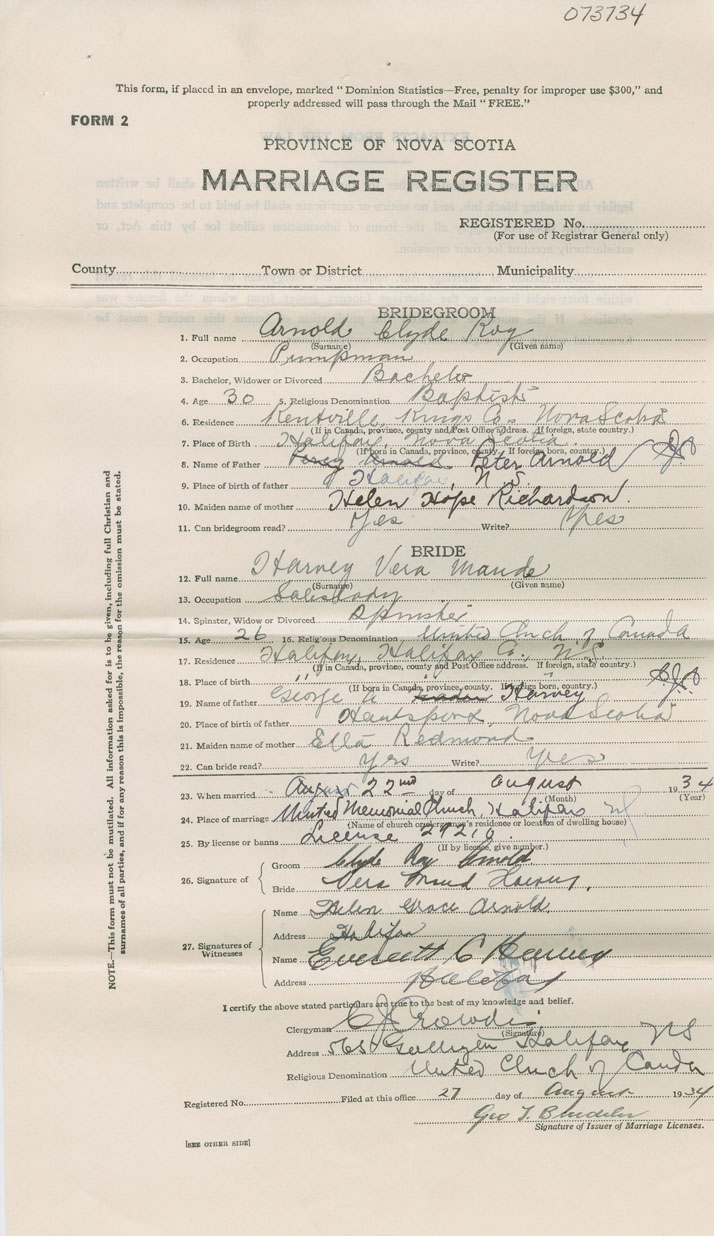 073734
This form, if placed in an envelope, marked "Dominion Statistics—Free, penalty for improper use $300," and
properly addressed will pass through the Mail "FREE."
FORM 2
PROVINCE OF NOVA SCOTIA
MARRIAGE REGISTER
REGISTERED No.
(For use of Registrar General only)
County Town or District Municipality
BRIDEGROOM
1. Full name Arnold Clyde Roy
(Surname) (Given name)
2. Occupation Pumpman
3. Bachelor, Widower or Divorced Bachelor
4. Age 30 5. Religious Denomination Baptist
6. Residence Kentville, Kings Co. Nova Scotia
(If in Canada, province, county and Post Office address. If foreign, state country.)
7. Place of Birth Halifax, Nova Scotia.
(If born in Canada, province, county. If foreign born, country.)
8. Name of Father Peter Arnold
9. Place of birth of father Halifax, N.S.
10. Maiden name of mother Helen Hope Richardson.
11. Can bridegroom read? Yes Write? Yes
BRIDE
12. Full name Harvey Vera Maude
(Surname) (Given name)
13. Occupation Saleslady
14. Spinster, Widow or Divorced Spinster
15. Age 26 16. Religious Denomination United Chuch of Canada
17. Residence Halifax, Halifax Co., N.S
(If in Canada, province, county and Post Office address. If foreign, state country.)
18. Place of birth " " "
(If born in Canada, province, county. If foreign born, country.)
19. Name of father George A Harvey
20. Place of birth of father Nova Scotia
21. Maiden name of mother Ella Redmond
22. Can bride read? Yes Write? Yes
23. When married August 22nd day of August 1934
(Month) (Year)
24. Place of marriage United Memorial Chuch, Halifax
(Name of church or clergyman's residence or location of dwelling house)
25. By license or banns License 29210.
(If by license, give number.)
26. Signature of
Groom Clyde Roy Arnold
Bride Vera Maud Harvey.
27. Signatures of Witnesses
Name Helen Grace Arnold
Address Halifax
Name Everett C Harvey
Address Halifax
I certify the above stated particulars are true to the best of my knowledge and belief.
Clergyman C J Crowdis
(Signature)
Address Halifax NS
Religious Denomination United Chuch of Canada
Registered No. Filed at this office 27 day of August 1934
Geo T.
Signature of Issuer of Marriage Licenses.
[SEE OTHER SIDE]
NOTE.—This form must not be mutilated. All information asked for is to be given, including full Christian and
surnames of all parties, and if for any reason this is impossible, the reason for the omission must be stated.